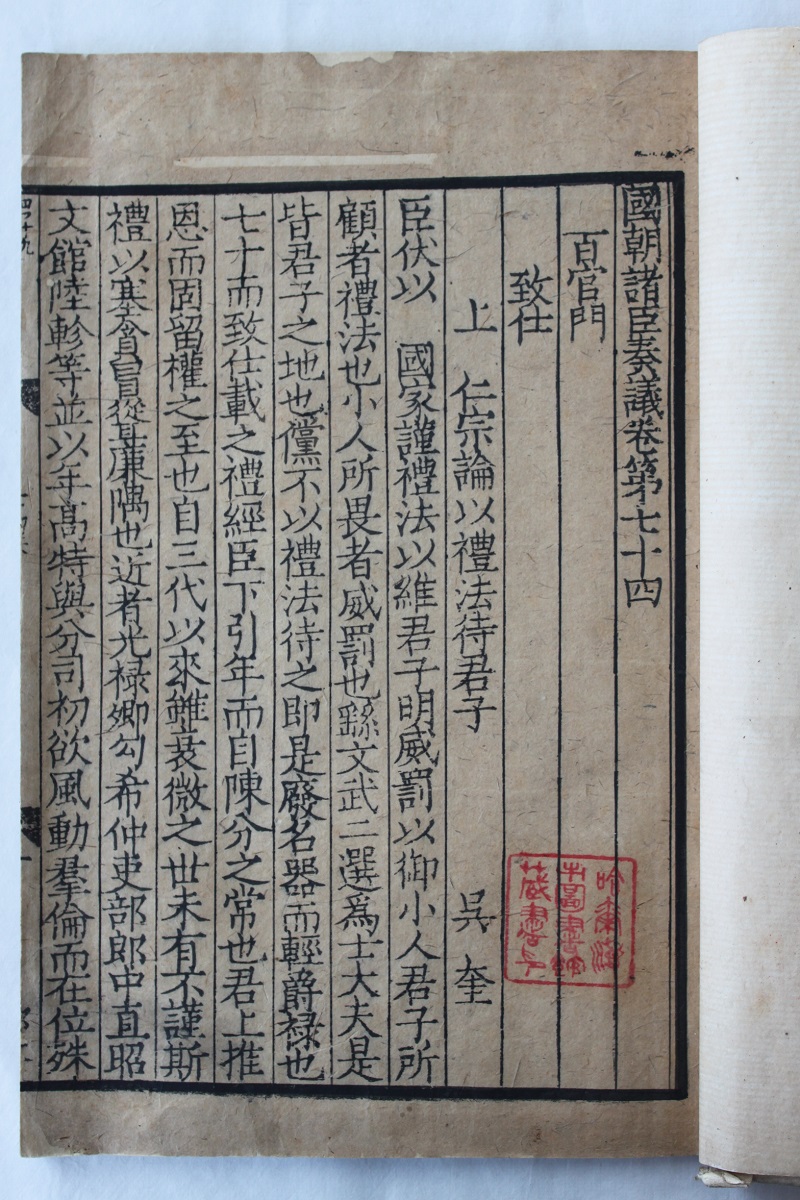 國朝諸臣奏議卷第七十四
百官門
致仕
上 仁宗論以禮法待君子 吳奎
臣伏以 國家謹禮法以維君子明威罰以御小人君子所
顧者禮法也小人所畏者威罰也繇文武二選爲士大夫是
皆君子之地也儻不以禮法待之即是廢名器而輕爵祿也
七十而致仕載之禮經臣下引年而自陳分之常也君上推
恩而固留權之至也自三代以來雖衰微之世未有不謹斯
禮以塞貪冒從其廉隅也近者光禄卿勾希仲吏部郎中直昭
文館陸軫等並以年高特與分司初欲風動羣倫而在位殊
哈爾濱
市圖書館
藏書